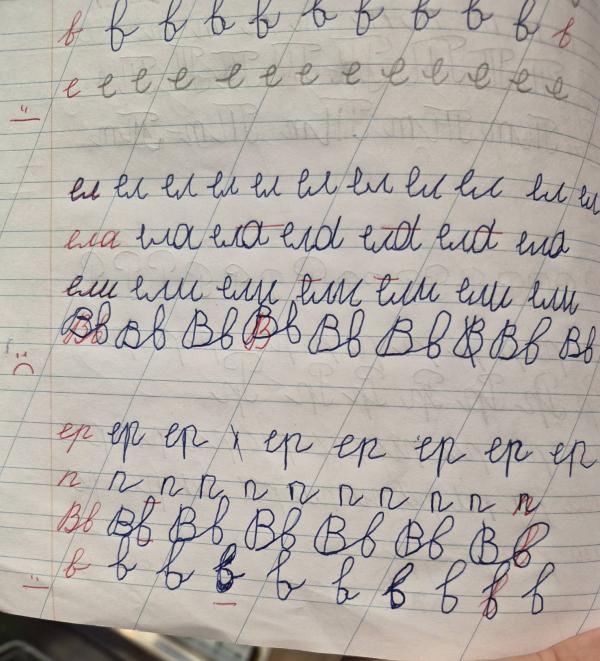 в в в в в в в в в в в
е е е е е е е е е е е е е
ел ел ел ел ел ел ел ел ел ел ел
ела ела ела ела ела ела ела
ели ели ели ели ели ели ели
Вв Вв Вв Вв Вв Вв В Вв Вв
ер ер ер х ер ер ер ер ер
п п п п п п п п п п п
Вв Вв Вв Вв Вв Вв Вв
в в в в в в в в в в